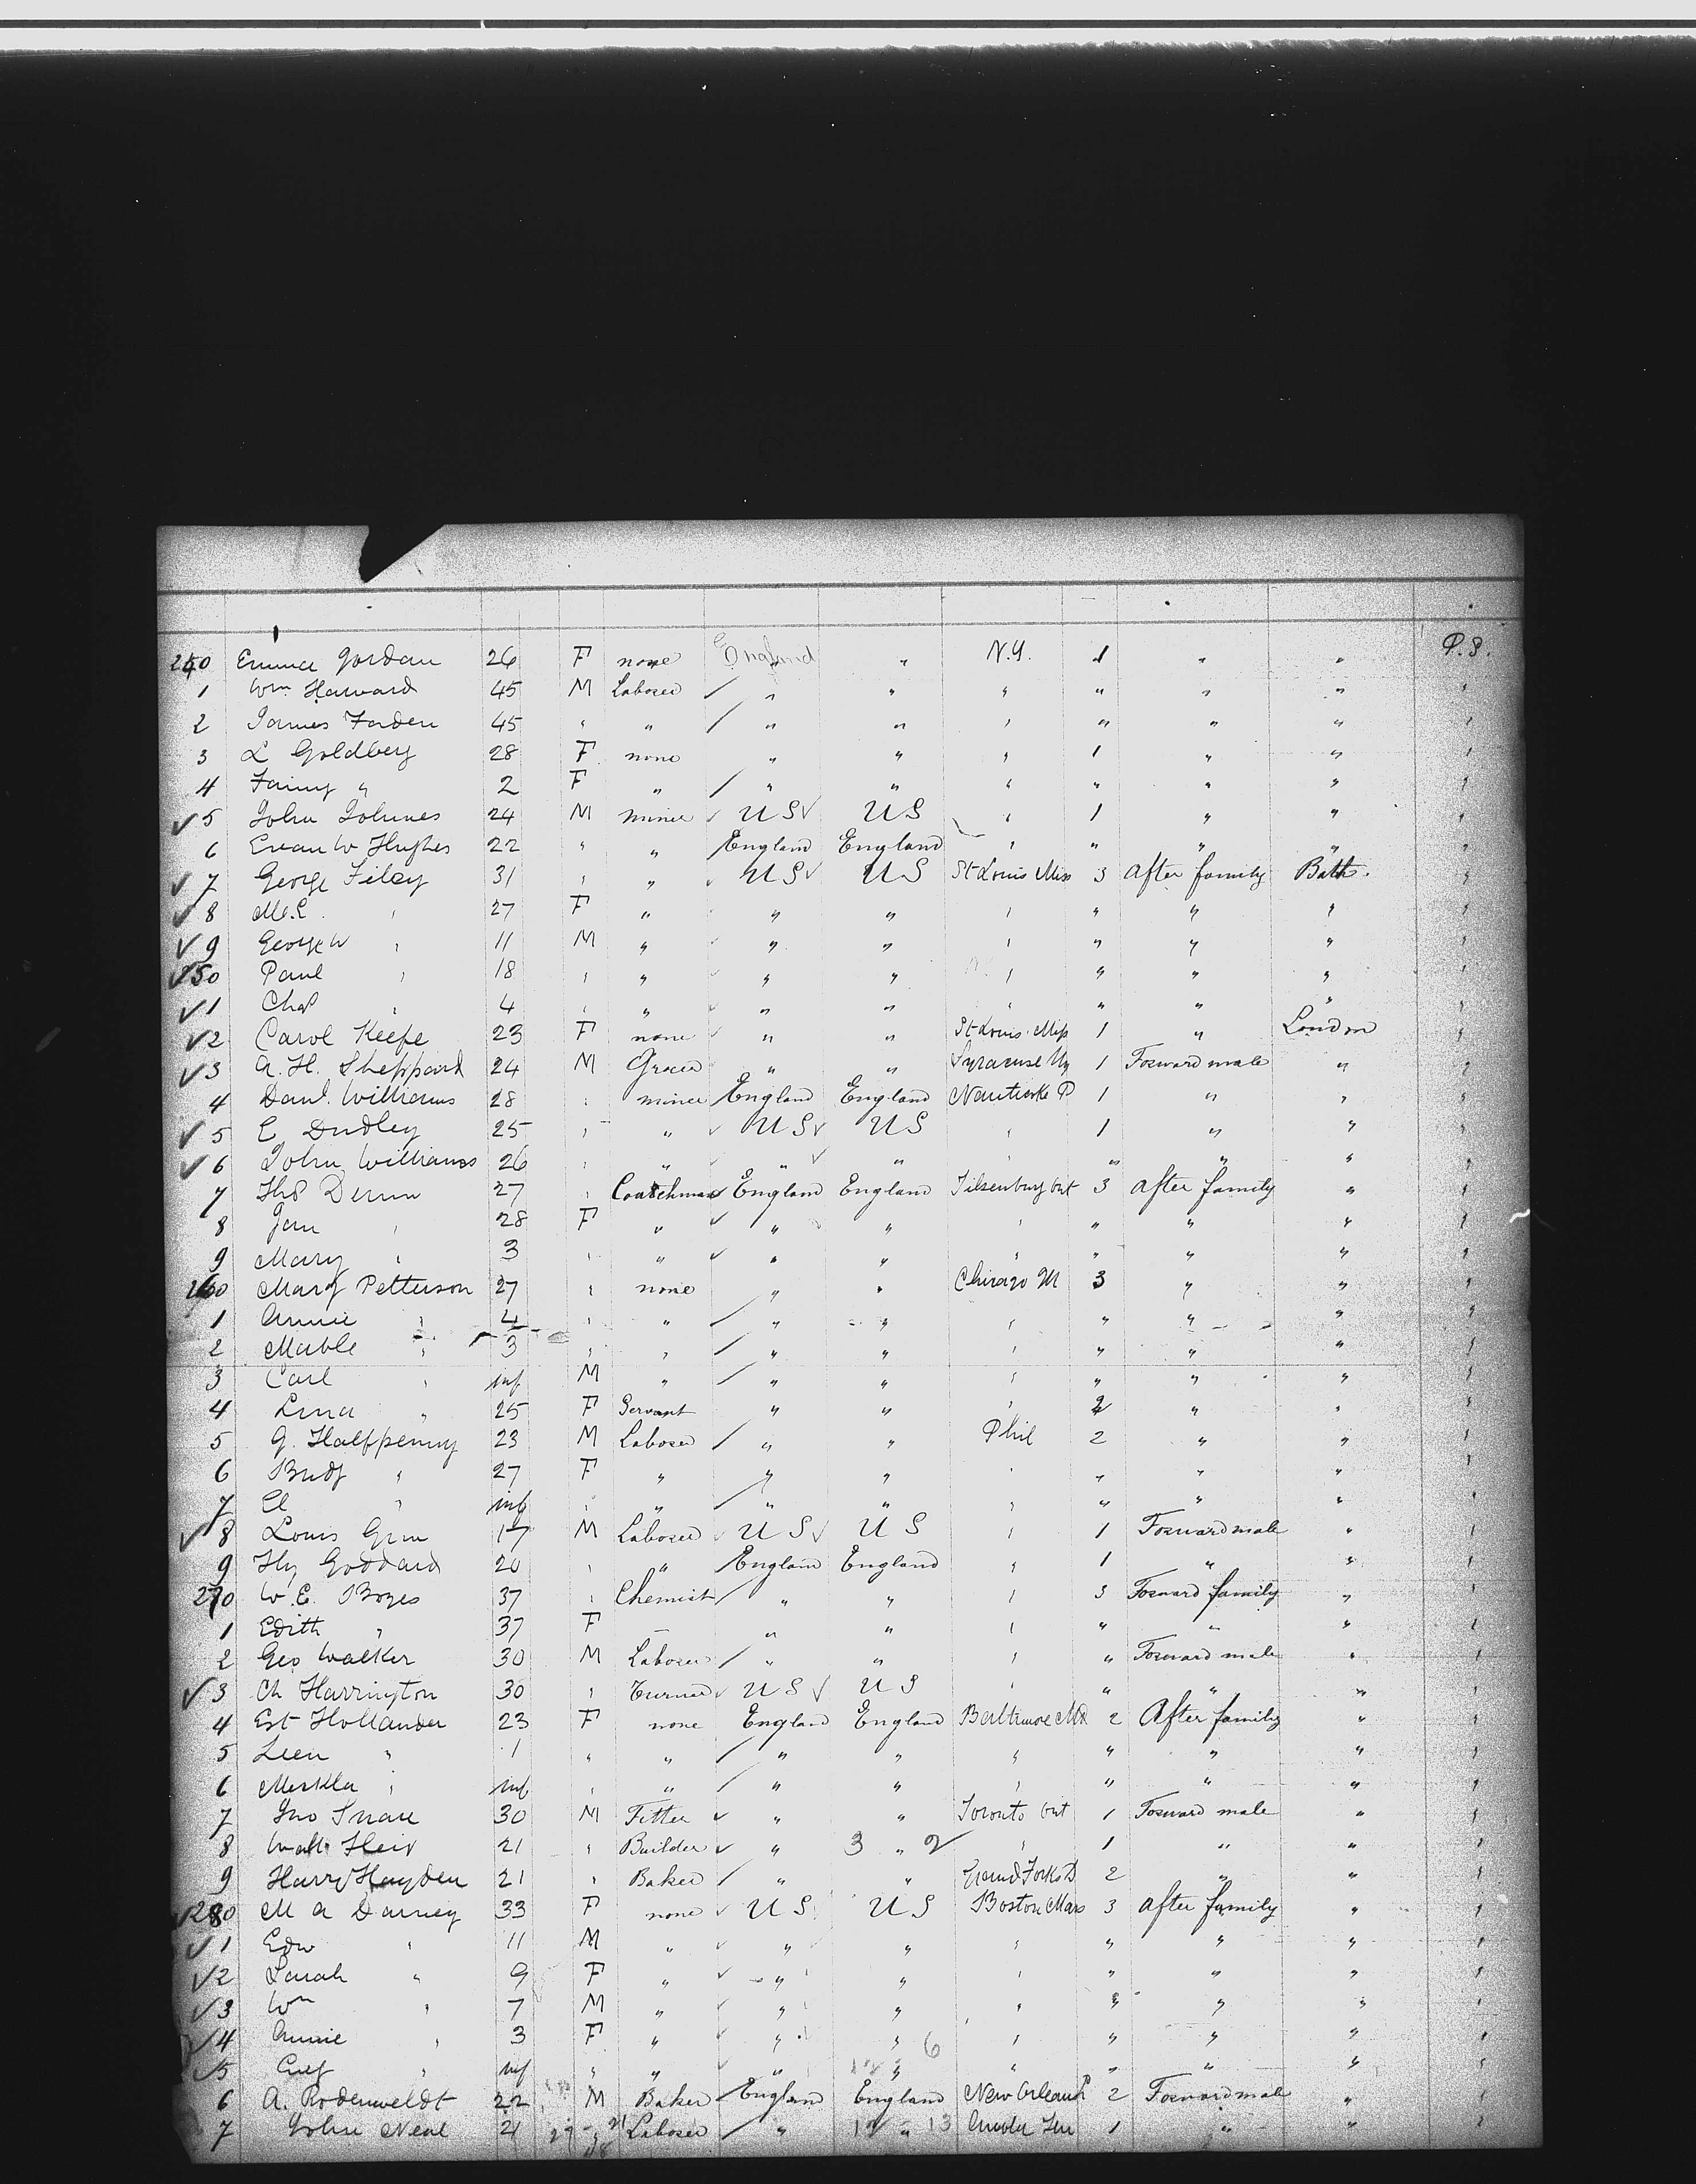 240 Emma Gordan 26 F none England " N.Y. 1 " " P.S.
1 Wm Harward 45 M Laborer " " " " " " "
2 James Forden 45 " " " " " " " " "
3 L Goldberg 28 F none " " " 1 " " "
4 Fanny " 2 F " " " " " " " "
5 John Johnes 24 M miner U S U S " 1 " " "
6 Evan W Hughes 22 " " England England " " " " "
7 George Filey 31 " " U S U S St Louis Miss 3 After family Baths. "
8 M.E. " 27 F " " " " " " " "
9 George W " 11 M " " " " " " " "
250 Paul " 18 " " " " " " " " "
1 Chas " 4 " " " " " " " " "
2 Carol Keefe 23 F none " " St Louis Miss 1 " London "
3 A. H. Sheppard 24 M Grocer " " Syracuse Ny 1 Forward male " "
4 Danl. Williams 28 " miner England England Nanticoke P 1 " " "
5 E Dudley 25 " " U S U S " 1 " " "
6 John Williams 26 " " " " " " " " "
7 Ths Dunn 27 " Coatchman England England Tilsenburg Ont 3 After family " "
8 Jan " 28 F " " " " " " " "
9 Mary " 3 " " " " " " " " "
260 Mary Petterson 27 " none " " Chicago Ill 3 " " "
1 Annie " 4 " " " " " " " " "
2 Mable " 3 " " " " " " " " "
3 Carl " inf M " " " " " " " "
4 Lina " 25 F Servant " " " 2 " " "
5 G. Halfpenny 23 M Laborer " " Phil 2 " " "
6 Bridg " 27 F " " " " " " " "
7 El " inf " " " " " " " " "
8 Louis Grin 17 M Laborer U S U S " 1 Forward male " "
9 Hy Goddard 20 " " England England " 1 " " "
270 W. E. Boyes 37 " Chemist " " " 3 Forward family " "
1 Edith " 37 F — " " " " " " "
2 Geo Walker 30 M Laborer " " " " Forward male " "
3 Ch Harrington 30 " Turner U S U S " " " " "
4 Est Hollander 23 F none England England Baltimore Md 2 After family " "
5 Leen " 1 " " " " " " " " "
6 " inf " " " " " " " " "
7 Jno Snare 30 M Fitter " " Toronto Ont 1 Forward male " "
8 Walt Heir 21 " Builder " 3 " 2 " 1 " " "
9 Harry Hayden 21 " Baker " " Grand Forks D 2 " " "
280 M A Darney 33 F none U S U S Boston Mass 3 After family " "
1 Edw " 11 M " " " " " " " "
2 Sarah " 9 F " " " " " " " "
3 Wm " 7 M " " " " " " " "
4 Annie " 3 F " " " 6 " " " " "
5 " inf " " " " " " " " "
6 A. Rodenweldt 22 M Baker England England New Orleans 2 Forward male " "
7 John Neal 21 Laborer " 12 " 13 1 " " "